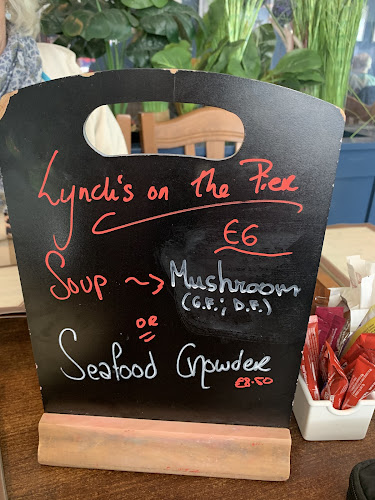 Lynch's on the Pier
€6
Soup ~> Mushroom
(G.F.; D.F.)
OR
Seafood Chowder
€8.50